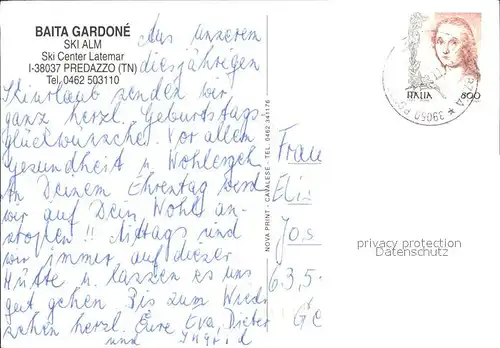 BAITA GARDONÉ
SKI ALM
Ski Center Latemar
I-38037 PREDAZZO (TN)
Tel. 0462 503110
Aus unserem
diesjährigen
Skiurlaub senden wir
ganz herzl. Geburtstags-
glückwünsche. Vor allem
Gesundheit u. Wohlergeh
An Deinem Ehrentag werd
wir auf Dein Wohl an-
stoßen!! Mittags sind
wir immer auf dieser
Hütte u. lassen es uns
gut gehen. Bis zum Wieder
sehen herzl. Eure Eva, Dieter
und Ingrid
NOVA PRINT - CAVALESE - TEL. 0462 341178
Frau
Jos
63,5
ITALIA 800
39050
privacy protection
Datenschutz